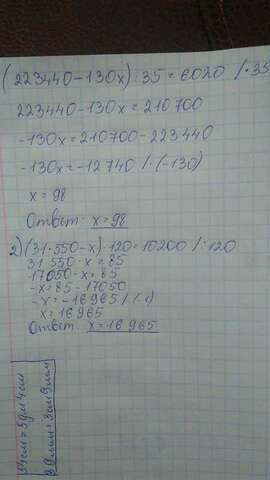 (223440-130x):35=6020 /·35
223440-130x=210700
-130x=210700-223440
-130x=-12740 /:(-130)
x=98
Ответ: x=98
2)(31·550-x):120=10200 /:120
31·550-x=85
17050-x=85
-x=85-17050
-x=-16965 /(-1)
x=16965
Ответ: x=16965
54см=5дм4см
39мм=3см9мм